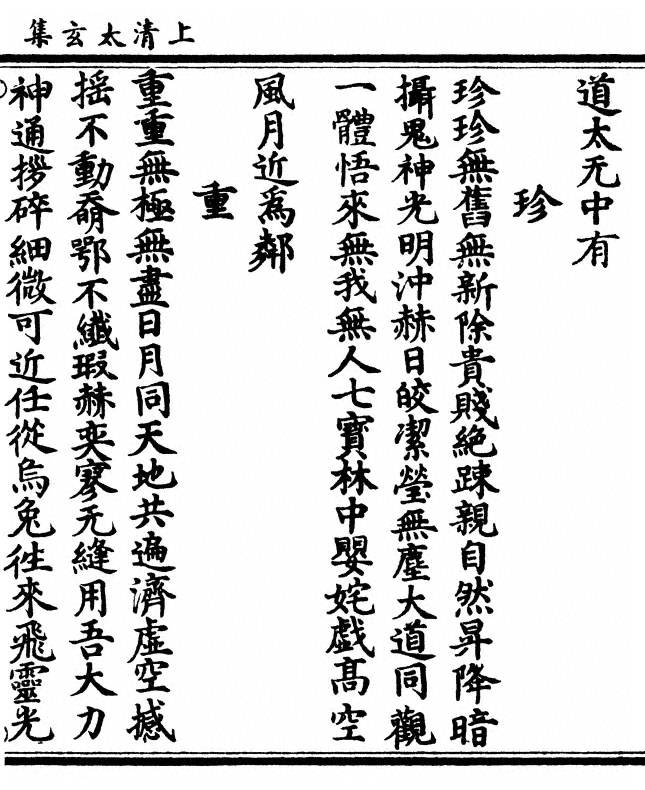 上清太玄集
道太无中有
珍
珍珍無舊無新除貴賤絕踈親自然昇降暗
攝鬼神光明沖赫日皎潔瑩無塵大道同觀
一體悟來無我無人七寶林中嬰姹戲髙空
風月近爲鄰
重
重重無極無盡日月同天地共遍濟虛空撼
揺不動鄂不纖瑕赫奕寥无縫用吾大力
神通拶碎細微可近任從烏兔徃來飛靈光